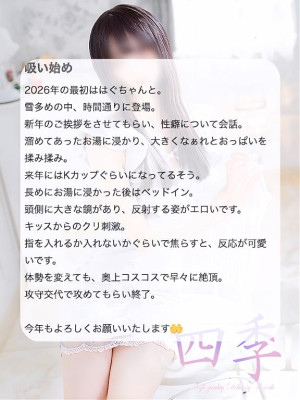 吸い始め
2026年の最初ははぐちゃんと。
雪多めの中、時間通りに登場。
新年のご挨拶をさせてもらい、性癖について会話。
溜めてあったお湯に浸かり、大きくなぁれとおっぱいを
揉み揉み。
来年にはKカップぐらいになってるそう。
長めにお湯に浸かった後はベッドイン。
頭側に大きな鏡があり、反射する姿がエロいです。
キッスからのクリ刺激。
指を入れるか入れないかぐらいで焦らすと、反応が可愛
いです。
体勢を変えても、奥上コスコスで早々に絶頂。
攻守交代で攻めてもらい終了。
今年もよろしくお願いいたします🤲
四季